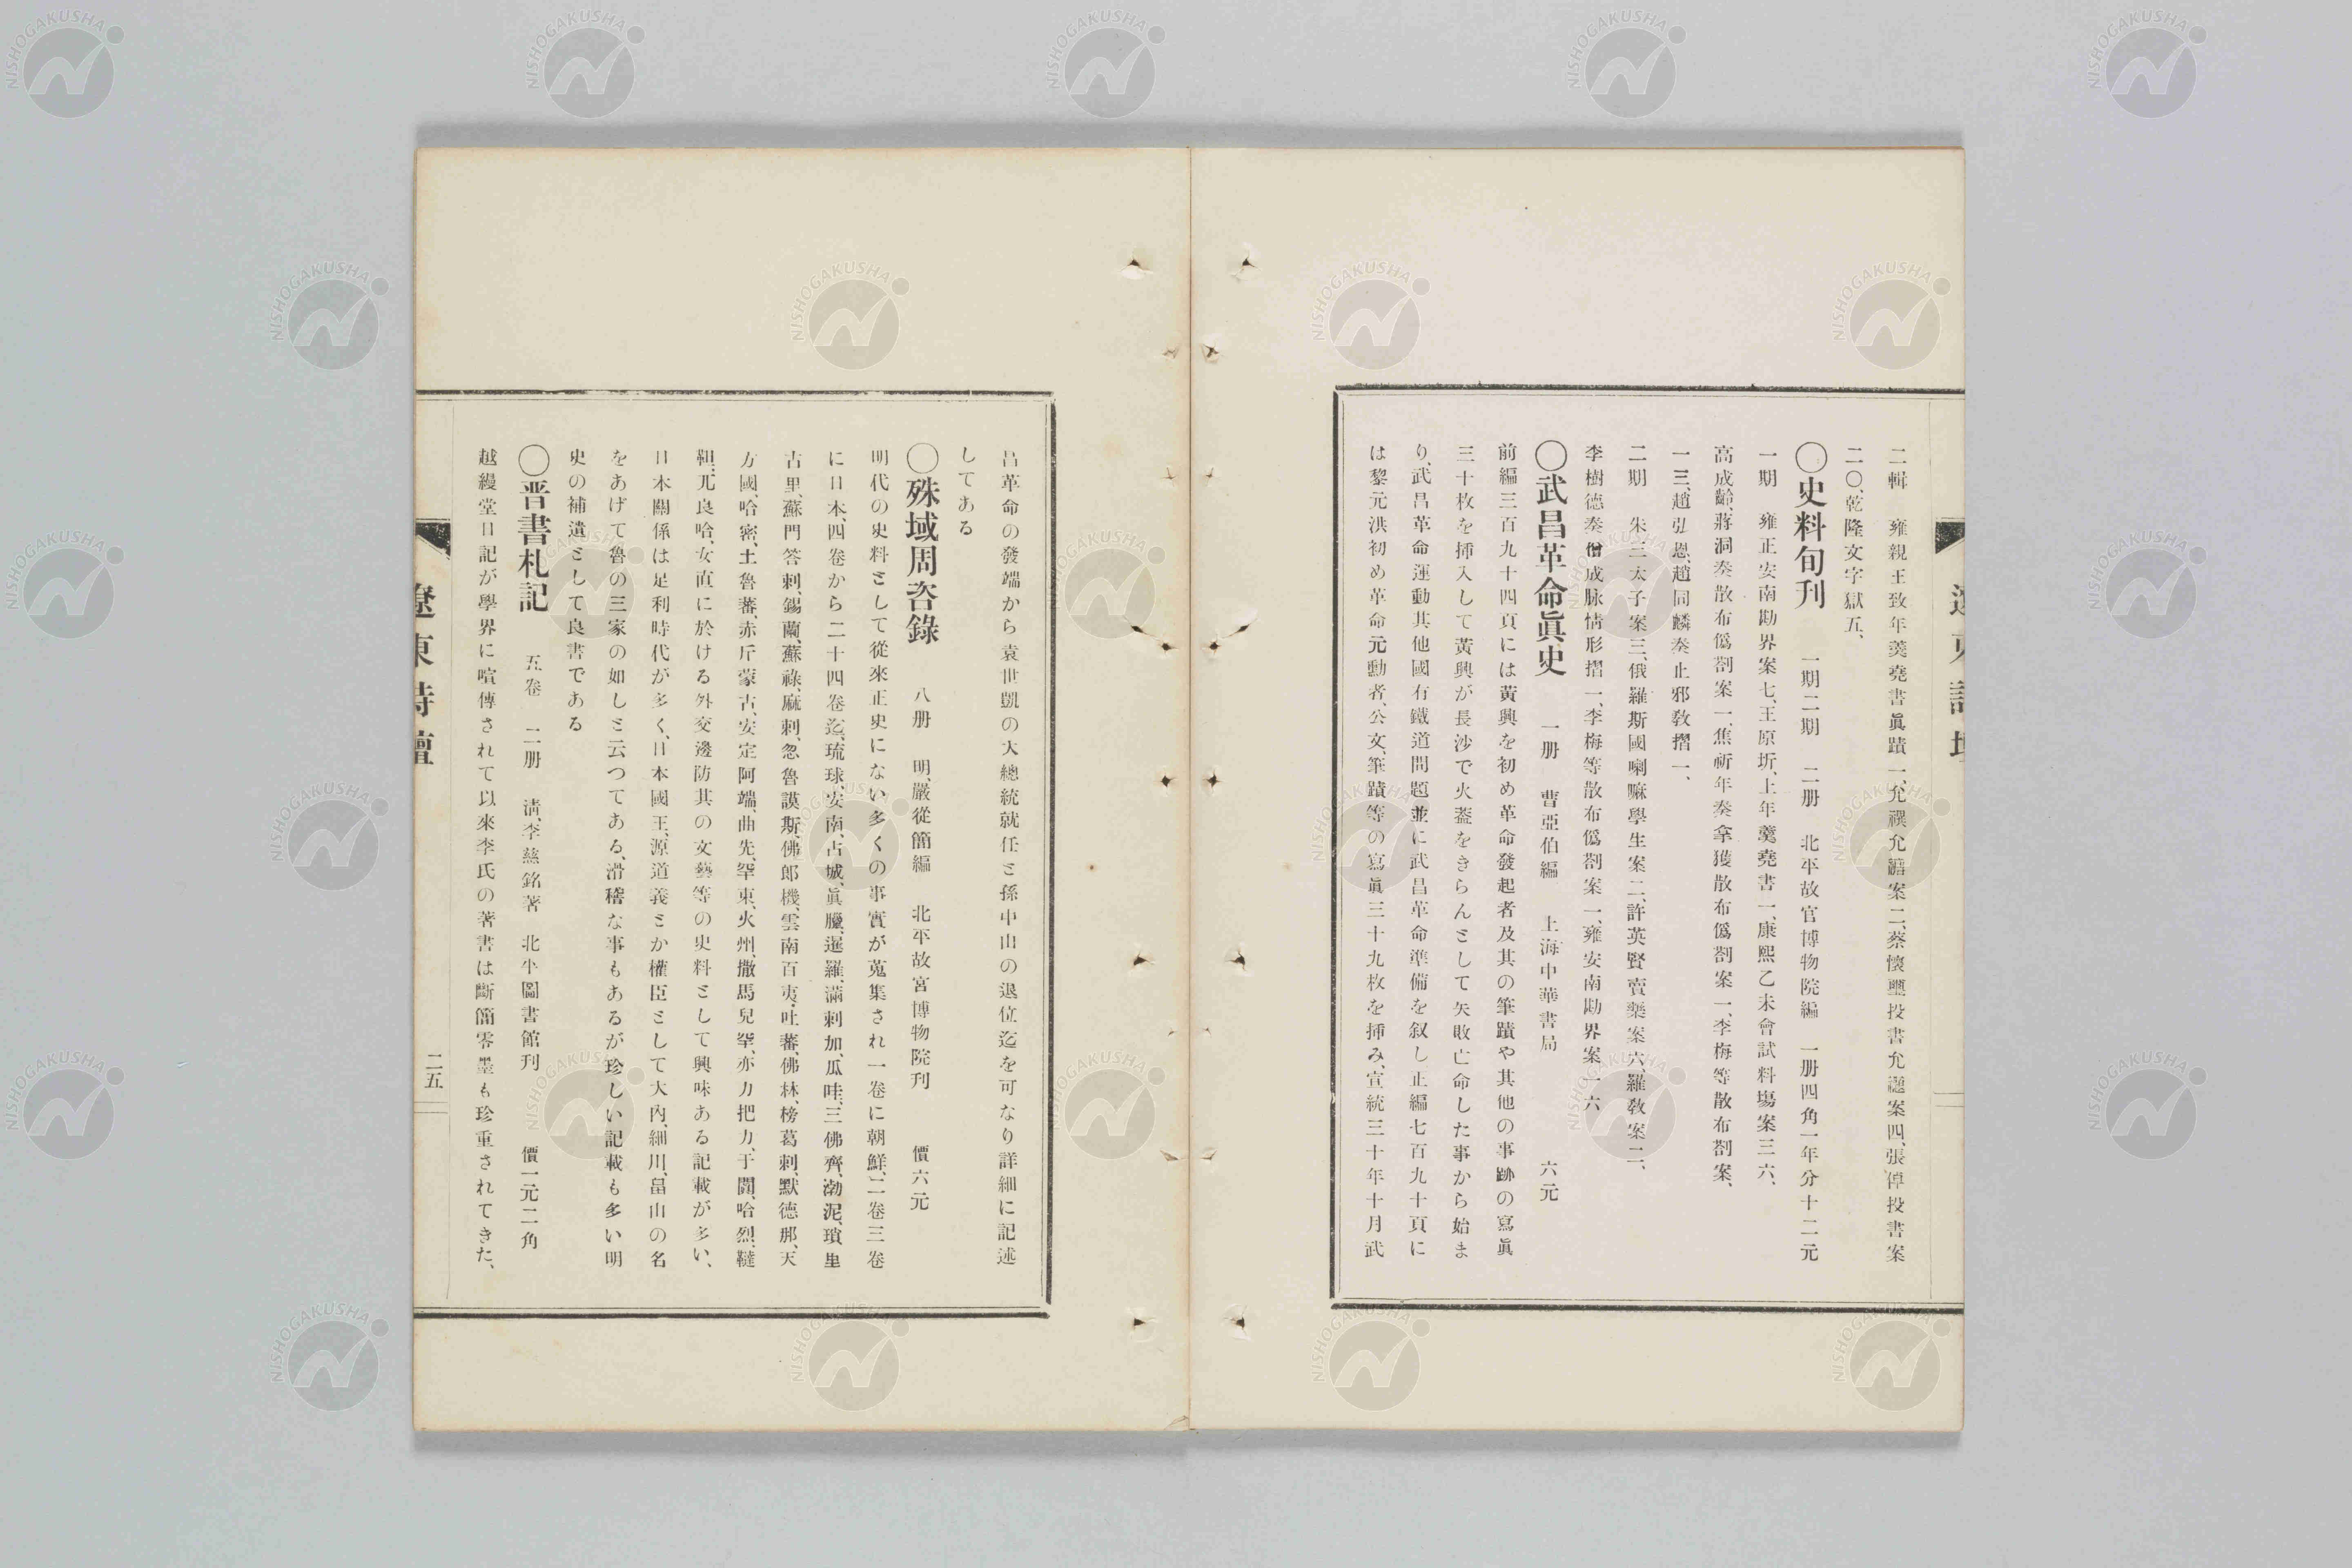 二輯　雍親王致年羹堯書眞蹟一、允禩允䄉案二、蔡懷璽投書允禵案四、張倬投書案
二〇、乾隆文字獄五、
〇史料旬刊　一期二期　二册　北平故宮博物院編　一册四角一年分十二元
一期　雍正安南勘界案七、王原圻、上年羹堯書一、康熙乙未會試科塲案三六、
高成齡、蔣洞奏散布僞劄案一、焦祈年奏拿獲散布僞劄案一、李梅等散布劄案、
一三、趙弘恩、趙同麟奏止邪敎摺一、
二期　朱三太子案三、俄羅斯國喇嘛學生案二、許英賢賣藥案六、羅敎案二、
李樹德奏僧成脉情形摺一、李梅等散布僞劄案一、雍安南勘界案、一六
〇武昌革命眞史　一册　曹亞伯編　上海中華書局　六元
前編三百九十四頁には黃興を初め革命發起者及其の筆蹟や其他の事跡の寫眞
三十枚を挿入して黃興が長沙で火葢をきらんとして失敗亡命した事から始ま
り、武昌革命運動其他國有鐵道問題並に武昌革命準備を叙し正編七百九十頁に
は黎元洪初め革命元勳者、公文、筆蹟等の寫眞三十九枚を挿み、宣統三十年十月武
昌革命の發端から袁世凱の大總統就任と孫中山の退位迄を可なり詳細に記述
してある
〇殊域周咨錄　八册　明、嚴從簡編　北平故宮博物院刊　價六元
明代の史料として從來正史にない多くの事實が蒐集され一卷に朝鮮、二卷三卷
に日本、四卷から二十四卷迄、琉球、安南、占城、眞臘、暹羅、滿剌加、瓜哇、三佛齊、渤泥、瑣里
古里、蘇門答剌、錫蘭、蘇祿、麻剌、忽魯謨斯、佛郎機、雲南百夷、吐蕃、佛林、榜葛剌、默德那、天
方國、哈密、土魯蕃、赤斤蒙古、安定阿端、曲先、罕東、火州、撒馬兒罕、亦力把力、于闐、哈烈、韃
靼、兀良哈、女直に於ける外交邊防其の文藝等の史料として興味ある記載が多い、
日本關係は足利時代が多く、日本國王、源道義とか權臣として大內、細川、畠山の名
をあげて魯の三家の如しと云つてある、滑稽な事もあるが珍しい記載も多い明
史の補遺として良書である
〇晋書札記　五卷　二册　淸、李慈銘著　北平圖書館刊　價一元二角
越縵堂日記が學界に喧傳されて以來李氏の著書は斷簡零墨も珍重されてきた、
遼東詩壇
二五